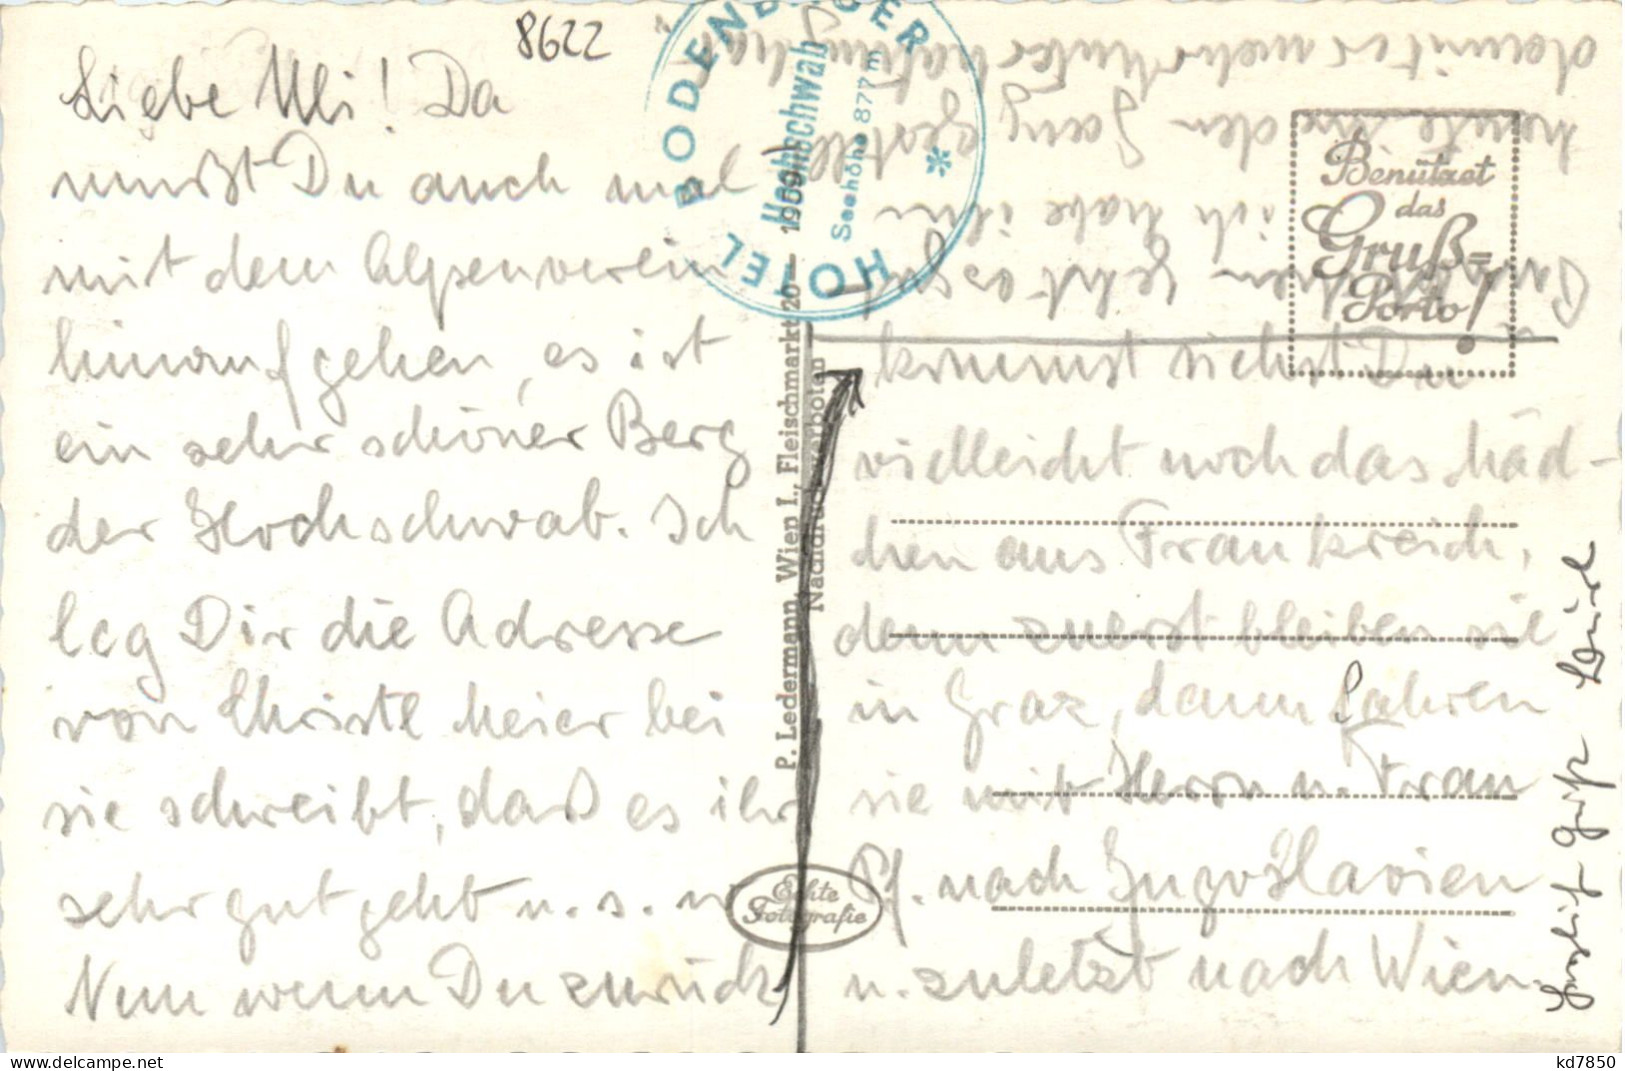 8622
Liebe Uli! Da
mußt Du auch mal
mit dem Alpenverein
hinauf gehen, es ist
ein sehr schöner Berg
der Hochschwab. Ich
leg Dir die Adresse
von Christl Meier bei
sie schreibt, daß es ihr
sehr gut geht u. s. w
Nun wenn Du zurück
kommst siehst Du
vielleicht noch das Mäd-
chen aus Frankreich,
denn zuerst bleiben sie
in Graz, dann fahren
sie mit Herrn u. Frau
Pf. nach Jugoslavien
u. zuletzt nach Wien.
geht es gut
ich habe ihm
heute in den Gang gestellt
damit er mehr Unterhaltung hat
Herzlich grüßt
HOTEL BODENBAUER *
Hochschwab
Seehöhe 877 m
Benützet
das
Gruß=
Porto!
P. Ledermann, Wien I., Fleischmarkt 20 — 1959
Nachdruck verboten
Echte
Fotografie
www.delcampe.net
kd7850